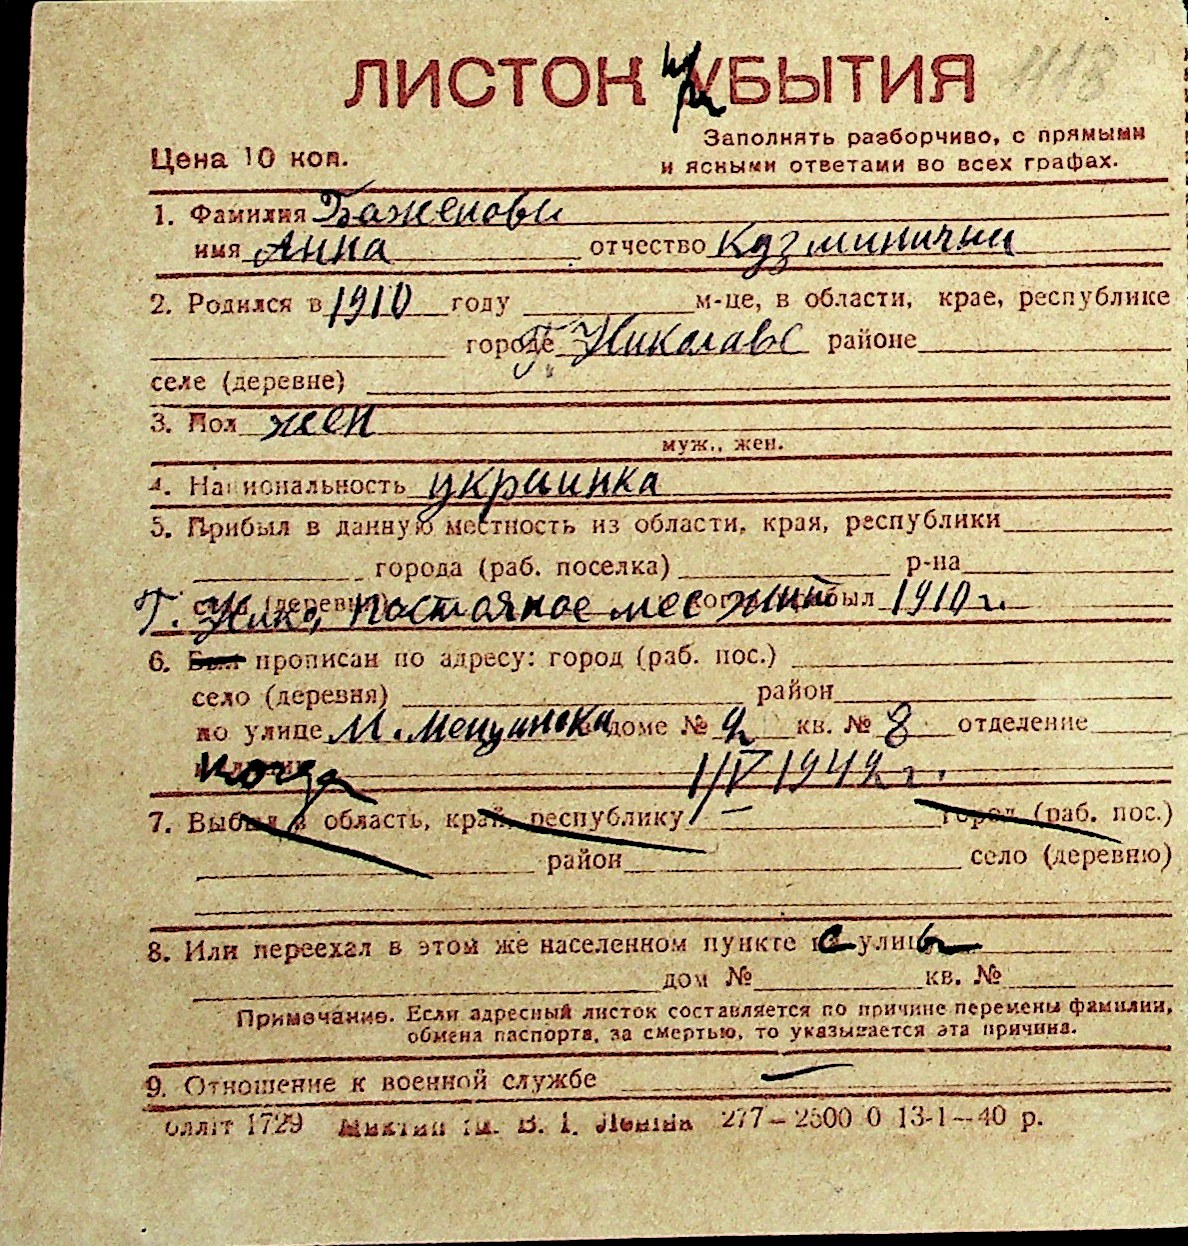 ЛИСТОК УБЫТИЯ
Цена 10 коп.
Заполнять разборчиво, с прямыми
и ясными ответами во всех графах.
1. Фамилия Баженова
имя Анна отчество Кузминична
2. Родился в 1910 году м-це, в области, крае, республике
городе Г. Николаве районе
селе (деревне)
3. Пол жен
муж., жен.
4. Национальность украинка
5. Прибыл в данную местность из области, края, республики
города (раб. поселка) р-на
Г. Нико, постояное мес жит 1910 г.
6. Был прописан по адресу: город (раб. пос.)
село (деревня) район
по улице М. Мещанска доме № 2 кв. № 8 отделение
когда 1/IV 1942 г.
7. Выбыл в область, край, республику город (раб. пос.)
район село (деревню)
8. Или переехал в этом же населенном пункте с улицы
дом № кв. №
Примечание. Если адресный листок составляется по причине перемены фамилии,
обмена паспорта, за смертью, то указывается эта причина.
9. Отношение к военной службе —
1729 В. І. Леніна 277—2500 0 13-1—40 р.